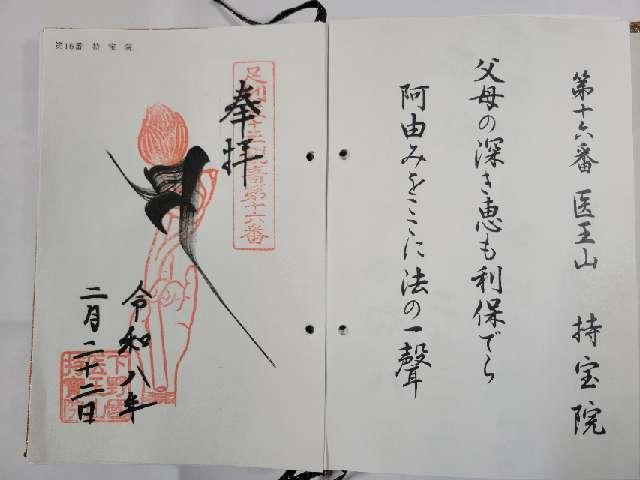 第十六番 医王山 持宝院
父母の深き恵も利保でら
阿由みをここに法の一聲
第16番 持宝院
足利 第十六番
奉拝
令和八年
二月二十二日
下野
医王山
持寶院